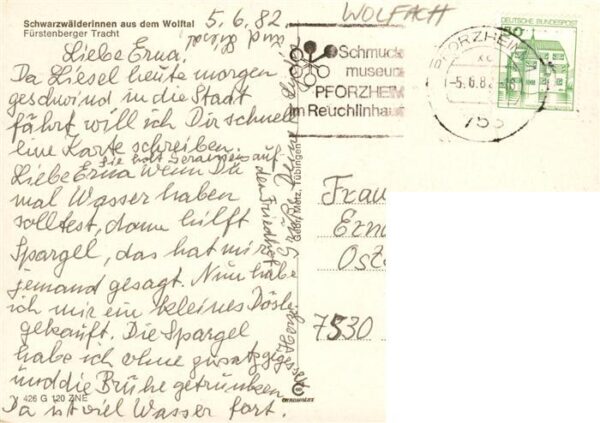 Schwarzwälderinnen aus dem Wolftal
Fürstenberger Tracht
5.6.82
WOLFACH
Liebe Erna,
Da Liesel heute morgen
geschwind in die Staat
fährt will ich Dir schnell
eine Karte schreiben.
Sie holt Geranien auf
den Friedhof
Liebe Erna wenn Du
mal Wasser haben
solltest, dann hilft
Spargel, das hat mir
jemand gesagt. Nun habe
ich mir ein kleines Dösle
gekauft. Die Spargel
habe ich ohne zusatz gegessen
und die Brühe getrunken
Da ist viel Wasser fort.
herzl. Grüße Deine
und
426 G 120 ZNE
Gebr. Metz, Tübingen
Schmuck
museum
PFORZHEIM
im Reuchlinhaus
PFORZHEIM
-5.6.82
753
DEUTSCHE BUNDESPOST
Frau
Ern
Ost
7530